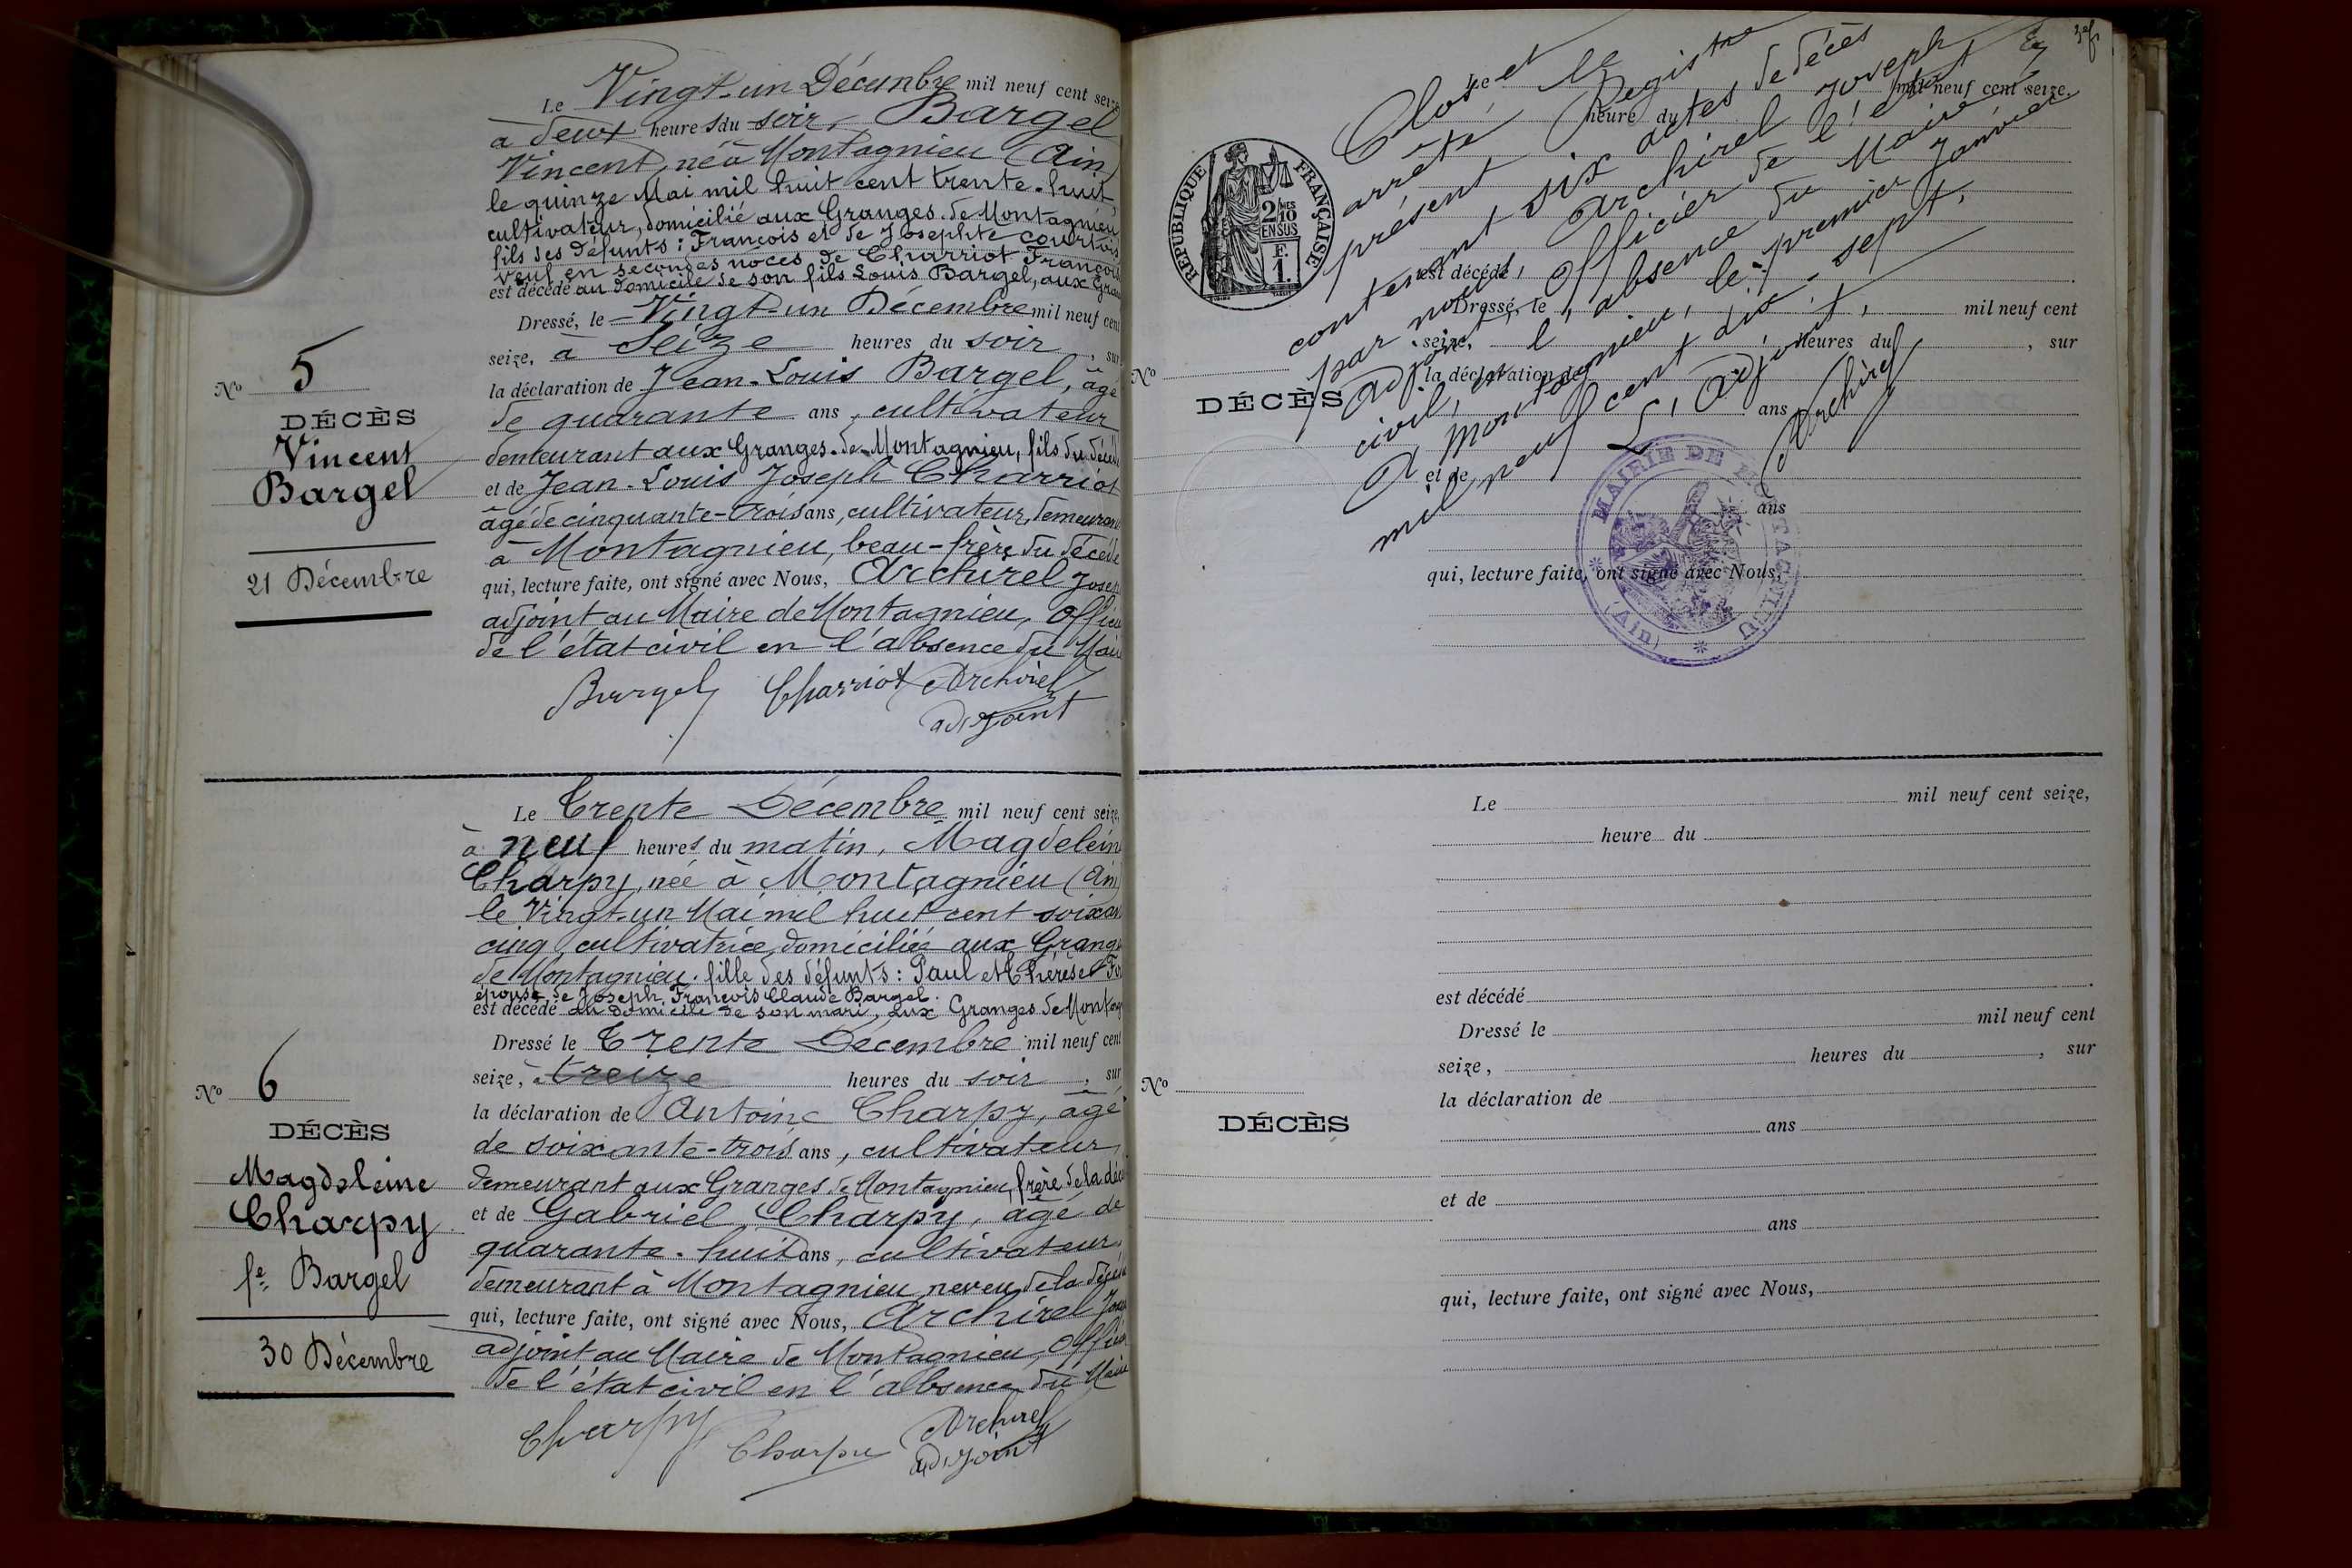 Le Vingt-un Décembre mil neuf cent seize
à deux heures du soir, Bargel
Vincent, né à Montagnieu (Ain)
le quinze Mai mil huit cent trente-huit,
cultivateur, domicilié aux Granges-de-Montagnieu
fils des défunts : François et de Josephte Courtois
veuf en secondes noces de Charriot François
est décédé au domicile de son fils Louis Bargel, aux Gran
Dressé, le Vingt-un Décembre mil neuf cent
seize, à Seize heures du soir, sur
la déclaration de Jean-Louis Bargel, âgé
de quarante ans, cultivateur
demeurant aux Granges-de-Montagnieu, fils du décédé
et de Jean-Louis Joseph Charriot
âgé de cinquante-trois ans, cultivateur, demeurant
à Montagnieu, beau-frère du décédé
qui, lecture faite, ont signé avec Nous, Archirel Josep
adjoint au Maire de Montagnieu, Officie
de l'état civil en l'absence du Mair
Bargel Charriot Archirel
adjoint
No 5
DÉCÈS
Vincent
Bargel
21 Décembre
Le Trente Décembre mil neuf cent seize,
à neuf heures du matin, Magdelein
Charpy, née à Montagnieu (Ain)
le Vingt-un Mai mil huit cent soixan
cinq, cultivatrice, domiciliée aux Grange
de Montagnieu. fille des défunts : Paul et Thérèse
épouse de Joseph François Claude Bargel.
est décédé au domicile de son mari, aux Granges de Montag
Dressé le Trente Décembre mil neuf cent
seize, à treize heures du soir, sur
la déclaration de Antoine Charpy, âgé
de soixante-trois ans, cultivateur,
demeurant aux Granges de Montagnieu, frère de la décé
et de Gabriel Charpy, âgé de
quarante-huit ans, cultivateur,
demeurant à Montagnieu, neveu de la décéd
qui, lecture faite, ont signé avec Nous, Archirel Jose
adjoint au Maire de Montagnieu, Officie
de l'état civil en l'absence du Maire
Charpy Charpy Archirel
adjoint
No 6
DÉCÈS
Magdeleine
Charpy
fe Bargel
30 Décembre
Clos et
arrêté le
présent Registre
contenant six actes de décès
par nous, Archirel Joseph
Adjoint, Officier de l'état
civil, en l'absence du Maire
A Montagnieu, le premier Janvier
mil neuf cent dix-sept.
L'Adjoint,
Archirel
RÉPUBLIQUE FRANÇAISE
2/10 MES
EN SUS
F.
1.
MAIRIE DE MONTAGNIEU
(Ain)
Le mil neuf cent seize,
heure du
est décédé
Dressé, le mil neuf cent
seize, heures du , sur
No
la déclaration de
DÉCÈS
ans
et de
ans
qui, lecture faite, ont signé avec Nous,
Le mil neuf cent seize,
heure du
est décédé
Dressé le mil neuf cent
seize, heures du , sur
No
la déclaration de
DÉCÈS
ans
et de
ans
qui, lecture faite, ont signé avec Nous,